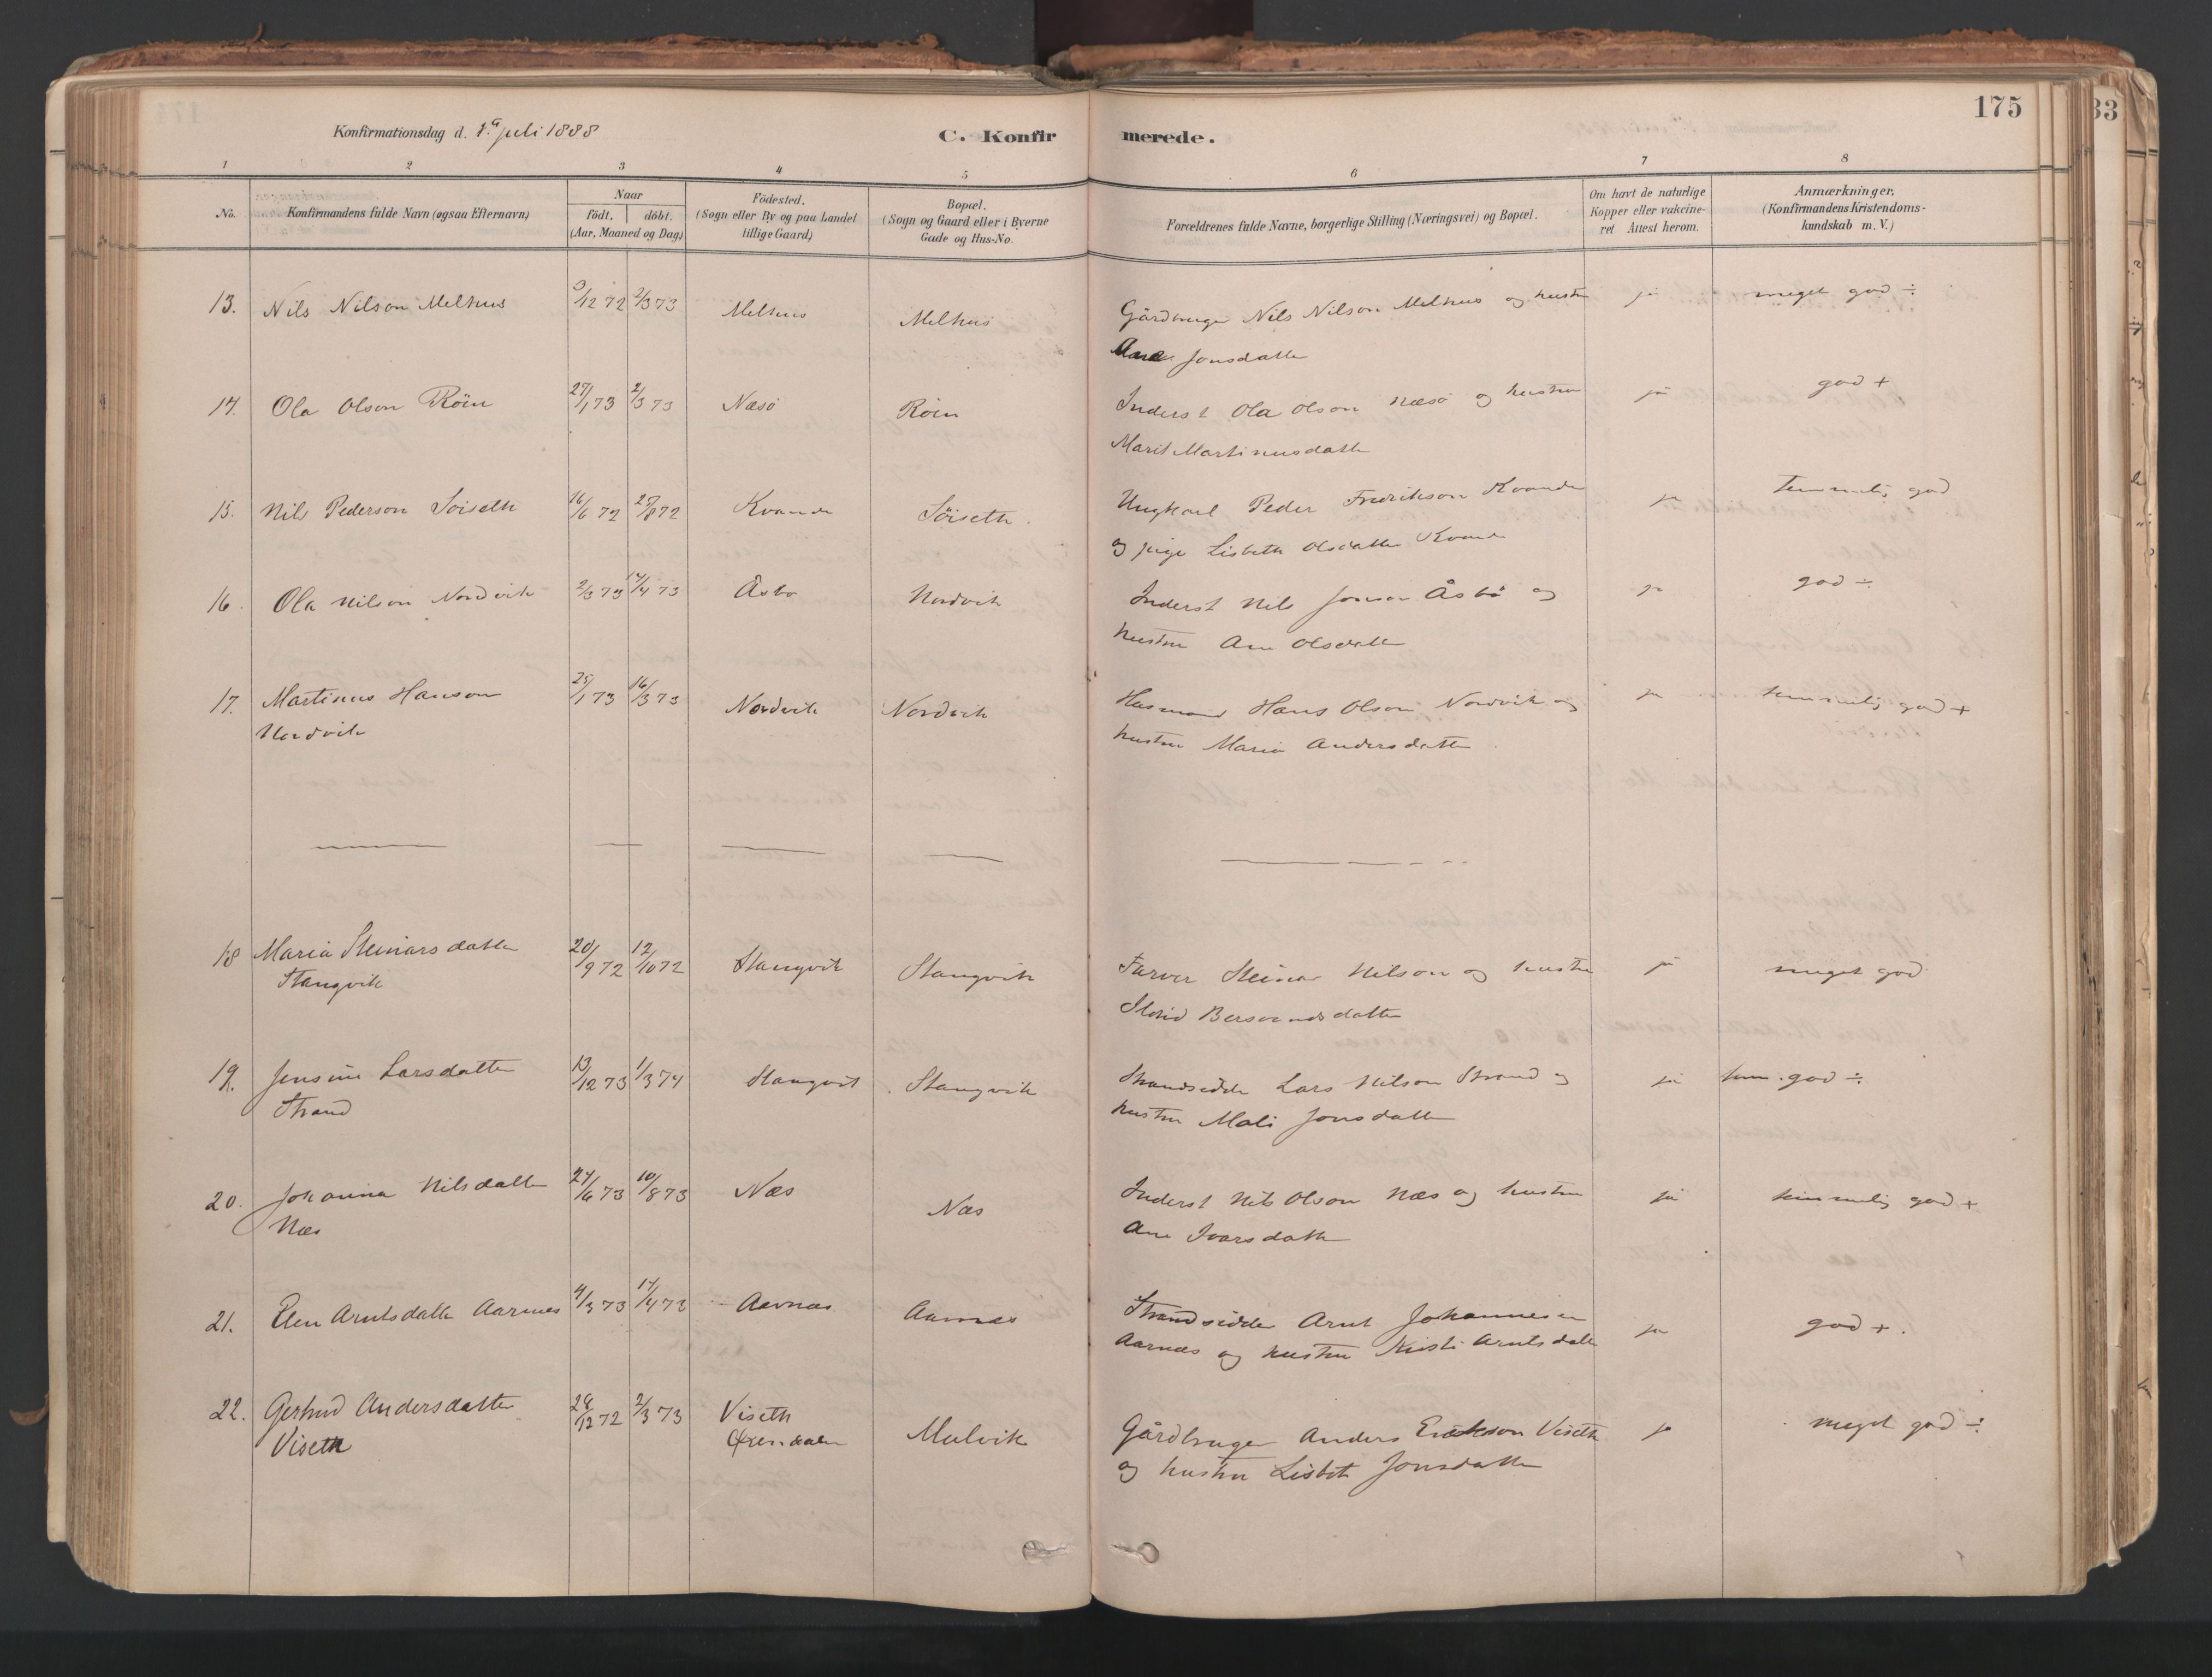 175
33
Konfirmationsdag d. 1ª juli 1888
C. Konfirmerede.
1 2 3 4 5 6 7 8
No. Konfirmandens fulde Navn (ogsaa Efternavn)
Naar
födt. döbt.
(Aar, Maaned og Dag)
Födested.
(Sogn eller By og paa Landet
tillige Gaard)
Bopæl.
(Sogn og Gaard eller i Byerne
Gade og Hus-No.
Forældrenes fulde Navne, borgerlige Stilling (Næringsvei) og Bopæl.
Om havt de naturlige
Kopper eller vakcine-
ret Attest herom.
Anmærkninger.
(Konfirmandens Kristendoms-
kundskab m. V.)
13. Nils Nilson Melhus 3/12 72 2/3 73 Melhus Melhus Gårdbruger Nils Nilson Melhus og hustru ja meget god ÷
Ane Jonsdatter
14. Ola Olson Röin 27/1 73 2/3 73 Næsö Röin Inderst Ola Olson Næsö og hustru ja god +
Marit Martinusdatter
15. Nils Pederson Söiseth 16/6 72 25/8 72 Kvande Söiseth. Ungkarl Peder Fredrikson Kvande ja temmelig god
og pige Lisbeth Olsdatter Kvande
16. Ola Nilson Nordvik 2/3 73 14/4 73 Åsbö Nordvik Inderst Nils Jonson Åsbö og ja god ÷
hustru Ane Olsdatter
17. Martinus Hanson 25/1 73 16/3 73 Nordvik Nordvik Husmand Hans Olson Nordvik og ja temmelig god +
Nordvik hustru Maria Andersdatter
18 Maria Steinarsdatter 20/9 72 12/10 72 Stangvik Stangvik Farver Steinar Nilson og hustru ja meget god
Stangvik Sigrid Bersvendsdatter
19. Jensine Larsdatter 13/12 73 1/3 74 Stangvik Stangvik Strandsidder Lars Nilson Strand og ja tem. god ÷
Strand hustru Mali Jonsdatter
20. Johanna Nilsdatter 24/6 73 10/8 73 Næs Næs Inderst Nils Olson Næs og hustru ja temmelig god +
Næs Ane Ivarsdatter
21. Elen Arntsdatter Aarnes 4/3 73 14/4 73 Aarnæs Aarnæs Strandsidder Arnt Johannesen ja god +.
Aarnæs og hustru Kirsti Arntsdatter
22. Gertrud Andersdatter 28/12 72 2/3 73 Viseth Mulvik Gårdbruger Anders Erikson Viseth ja meget god ÷
Viseth Öxendalen og hustru Lisbet Jonsdatter